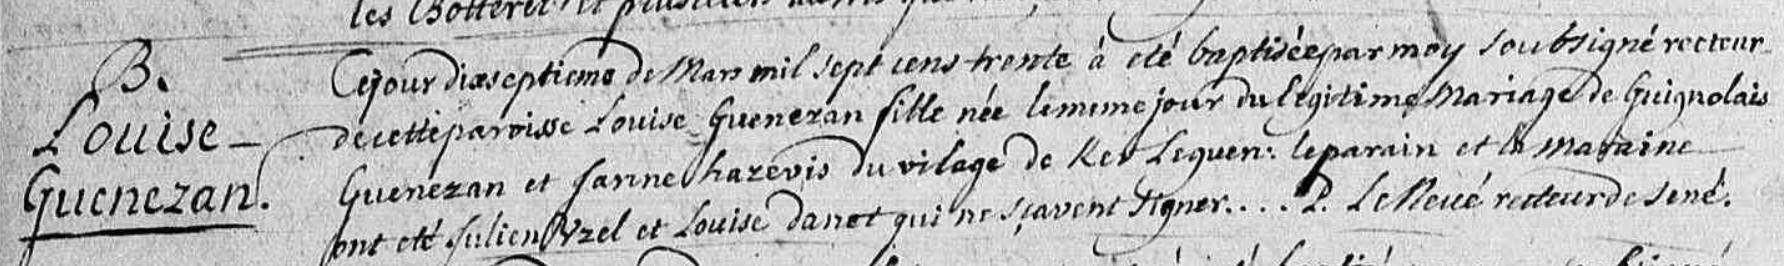 les Botterel et plusieurs autres
B.
Louise
Guenezan.
Cejour dixseptieme de Mars mil sept cens trente à eté baptisée par moy soubsigné recteur
de cette paroisse Louise Guenezan fille née le meme jour du legitime Mariage de Guignolais
Guenezan et Janne hazevis du vilage de Ker Leguen: le parain et la maraine
ont eté Julien Uzel et Louise danet qui ne sçavent signer.... P. Le Mené recteur de Sené.